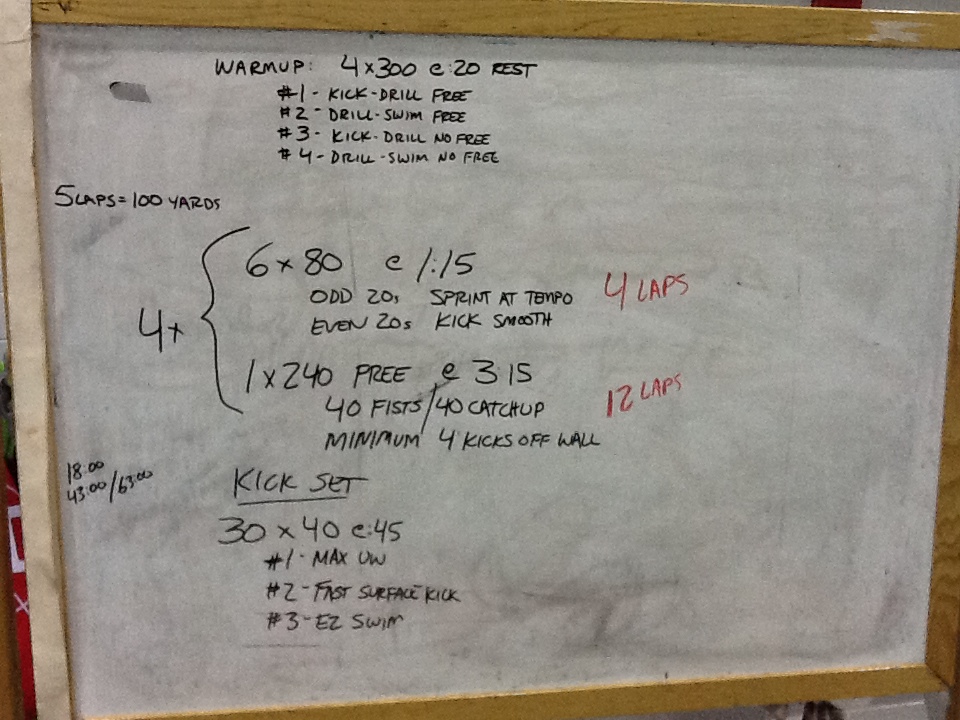 WARMUP: 4x300 @:20 REST
#1 - KICK-DRILL FREE
#2 - DRILL-SWIM FREE
#3 - KICK-DRILL NO FREE
#4 - DRILL-SWIM NO FREE
5 LAPS = 100 YARDS
4x
6 x 80 @ 1:15
ODD 20s SPRINT AT TEMPO
EVEN 20s KICK SMOOTH
4 LAPS
1 x 240 FREE @ 3 15
40 FISTS/40 CATCHUP
MINIMUM 4 KICKS OFF WALL
12 LAPS
18:00
43:00/63:00
KICK SET
30 x 40 @:45
#1 - MAX UW
#2 - FAST SURFACE KICK
#3 - EZ SWIM